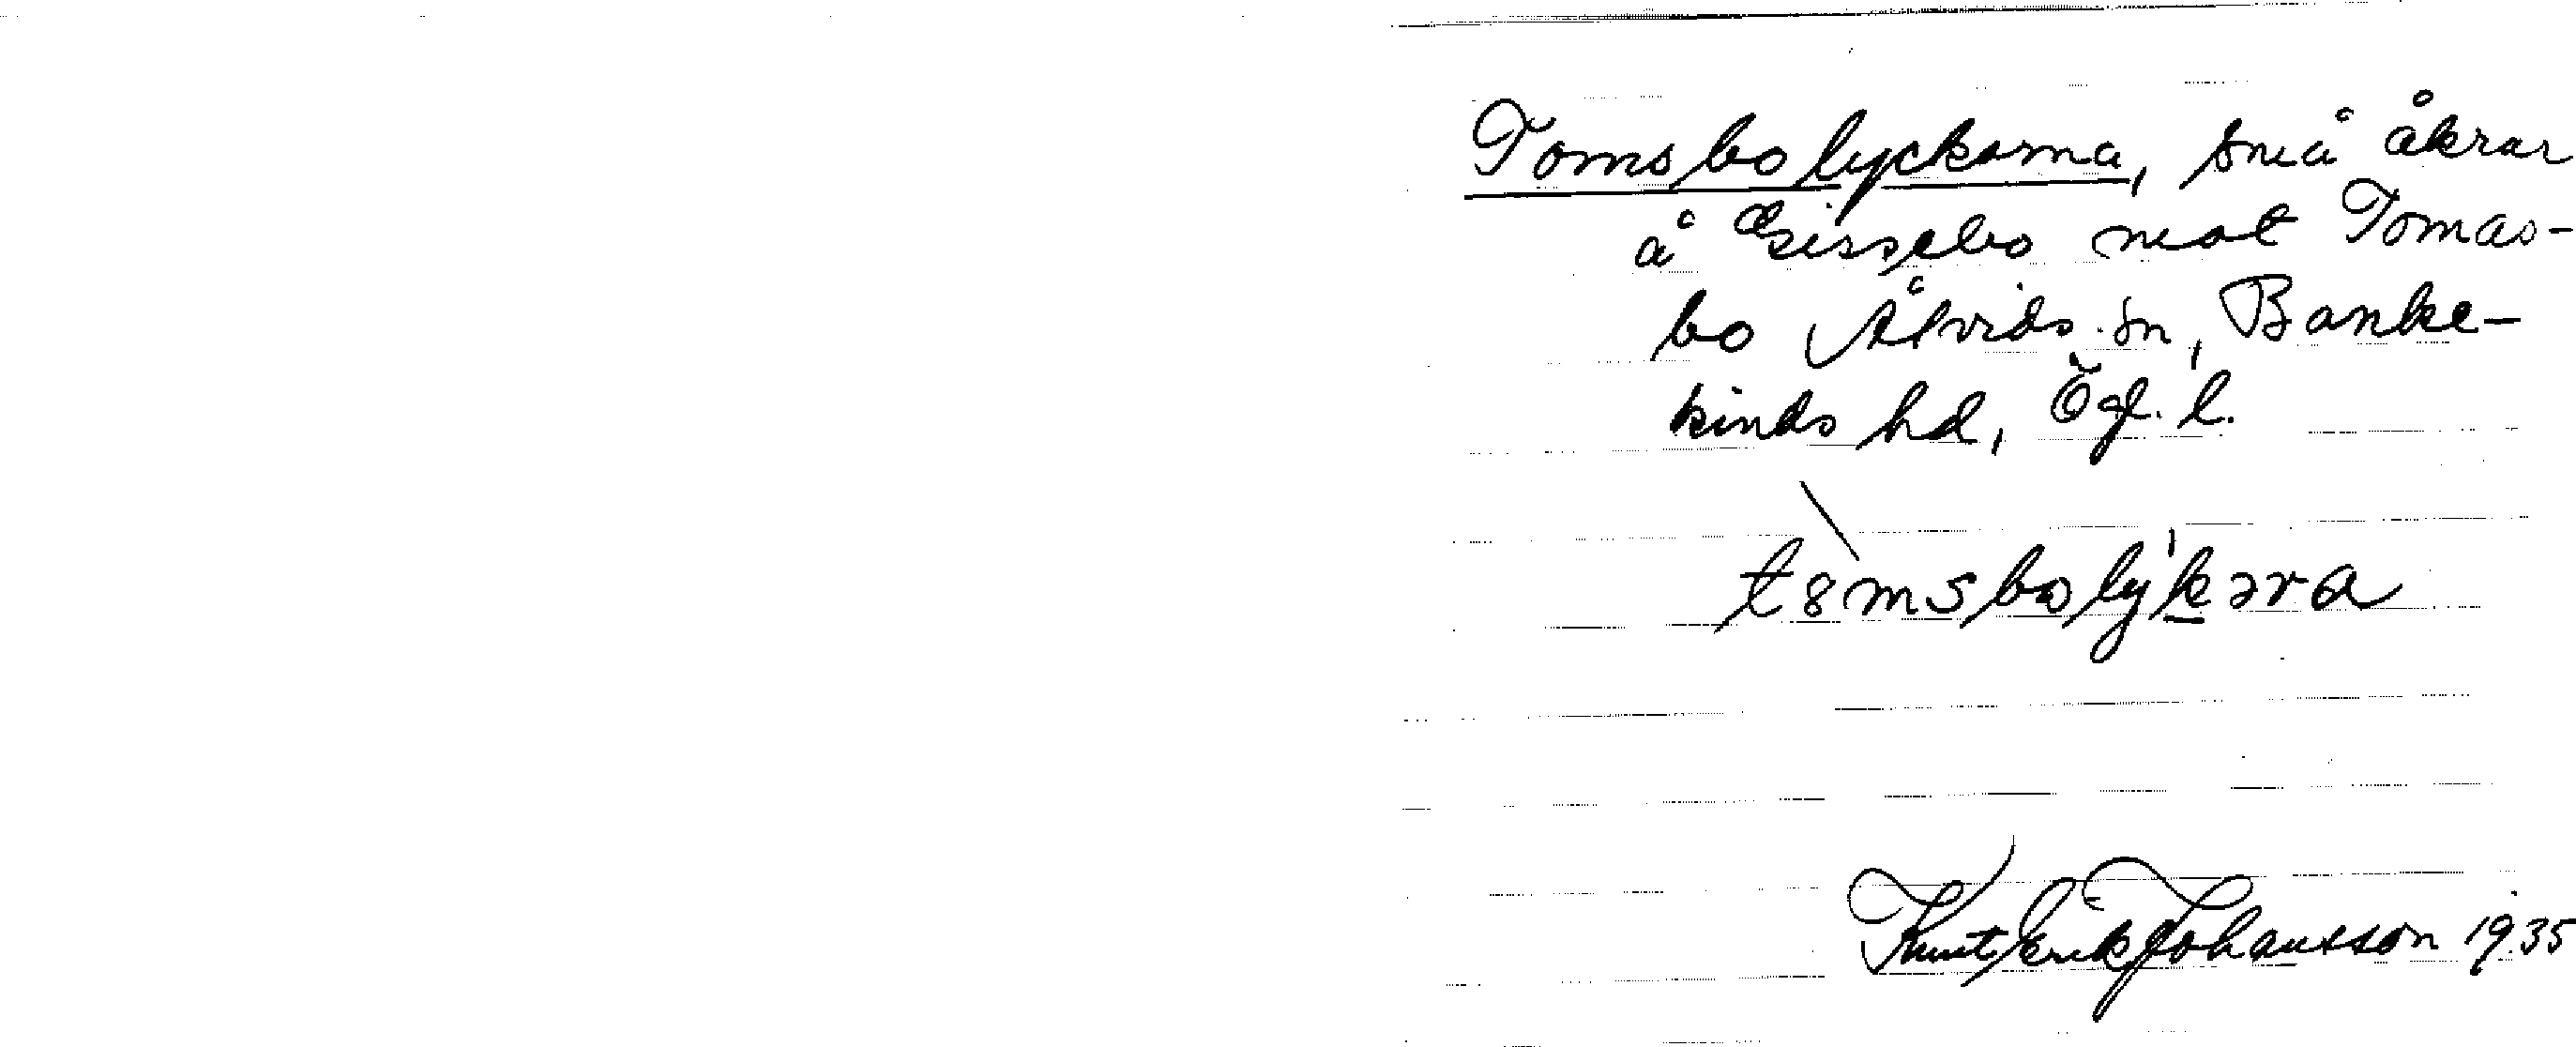 Tomsbolyckorna, små åkrar
å Gissebo mot Tomas-
bo Åtvids sn, Banke-
kinds hd, Ögl. l.
t8msbolykəra
Knut Erik Johansson 1935